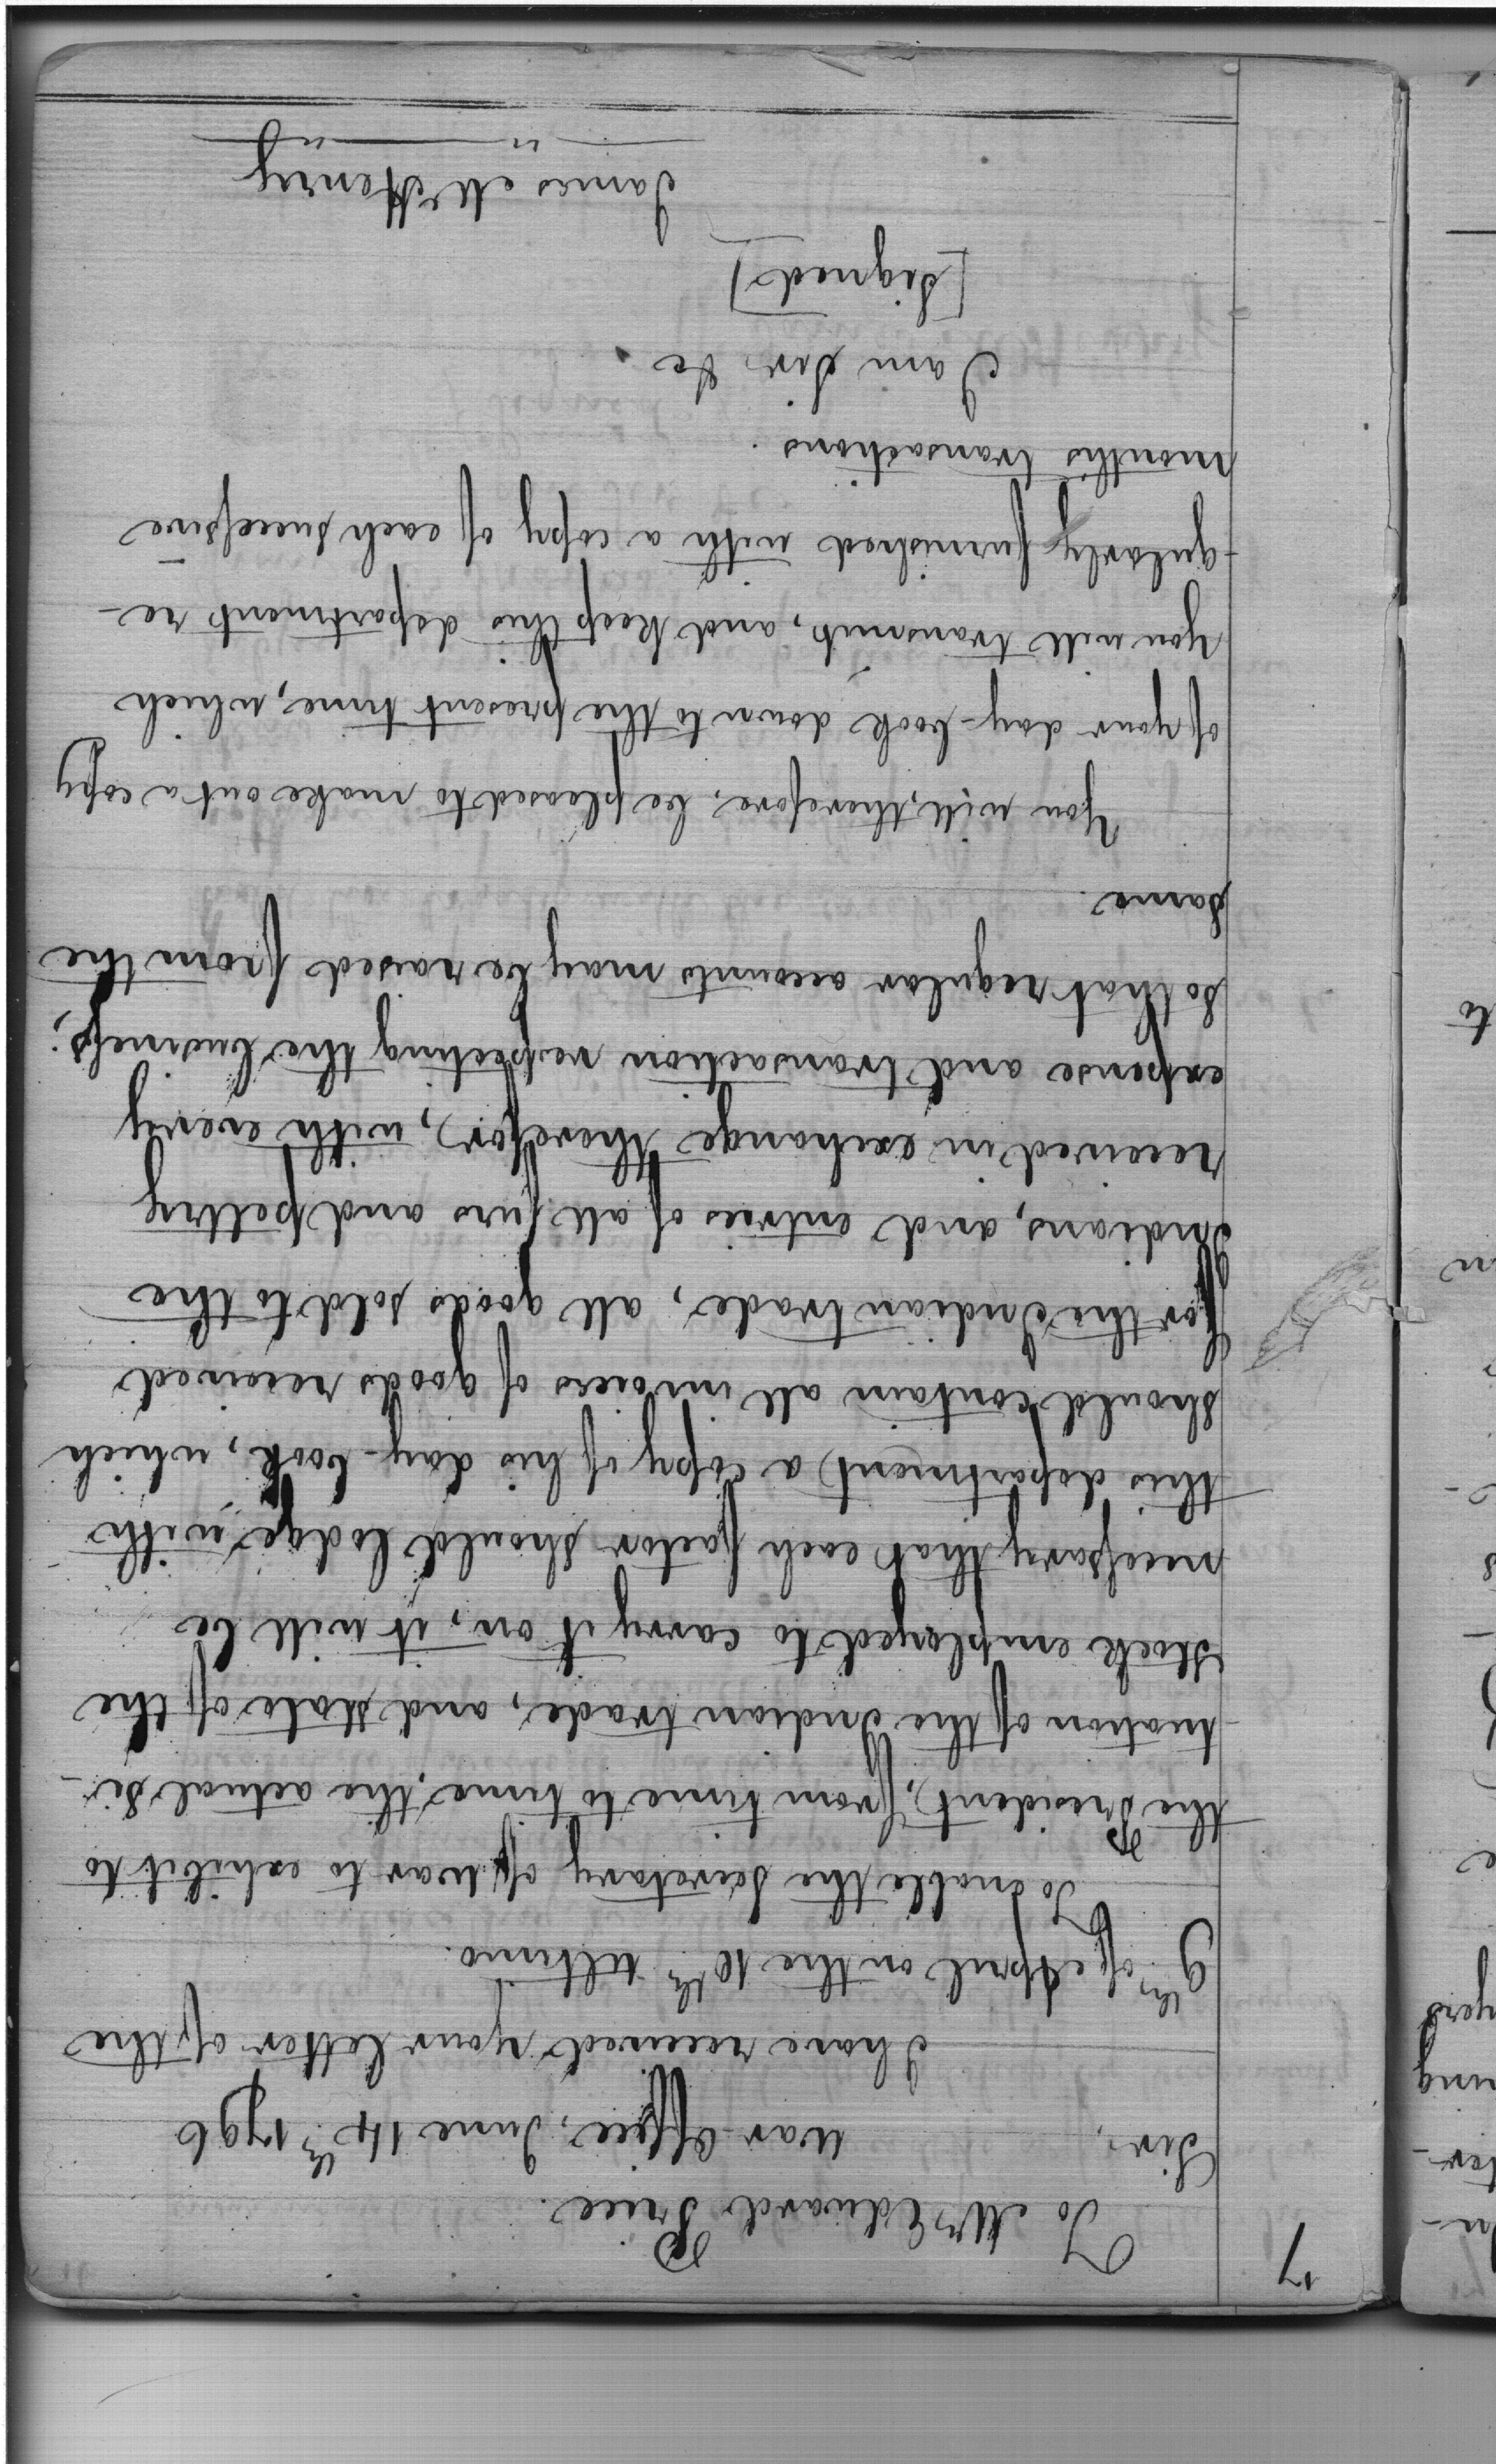 7
To Mr Edward Price.
Sir,
War Office, June 14th 1796
I have received your letter of the
9th of April on the 10th ultimo.
To enable the Secretary of War to exhibit to
the President, from time to time, the actual si-
-tuation of the Indian trade, and state of the
stock employed to carry it on, it will be
necessary that each factor should lodge with
this department a copy of his day-book, which
should contain all invoices of goods received
for the Indian trade, all goods sold to the
Indians, and entries of all furs and peltry
received in exchange therefor, with every
expense and transaction respecting the business;
so that regular accounts may be raised from the
same.
You will, therefore, be pleased to make out a copy
of your day-book down to the present time, which
you will transmit, and keep this department re-
-gularly furnished with a copy of each successive
month's transactions.
I am Sir &c
[Signed]
James McHenry